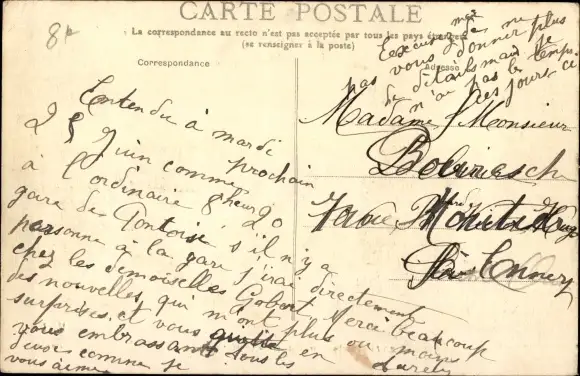 8f
CARTE POSTALE
La correspondance au recto n'est pas acceptée par tous les pays étrangers
(se renseigner à la poste)
Correspondance
Adresse
Excusez moi
si je ne
vous donner plus
de détails mais je
n'ai pas le temps
pas
ces jours-ci
Entendu à mardi
prochain
25 Juin comme
à l'ordinaire 8 heur 20
gare de Pontoise, s'il n'y a
personne à la gare j'irai directement
chez les demoiselles Gobert. Merci beaucoup
des nouvelles, qui m'ont plus ou moins
surprises, et vous en
vous embrassant tous les
deux comme je
vous aime
Madame Monsieur
Ennery